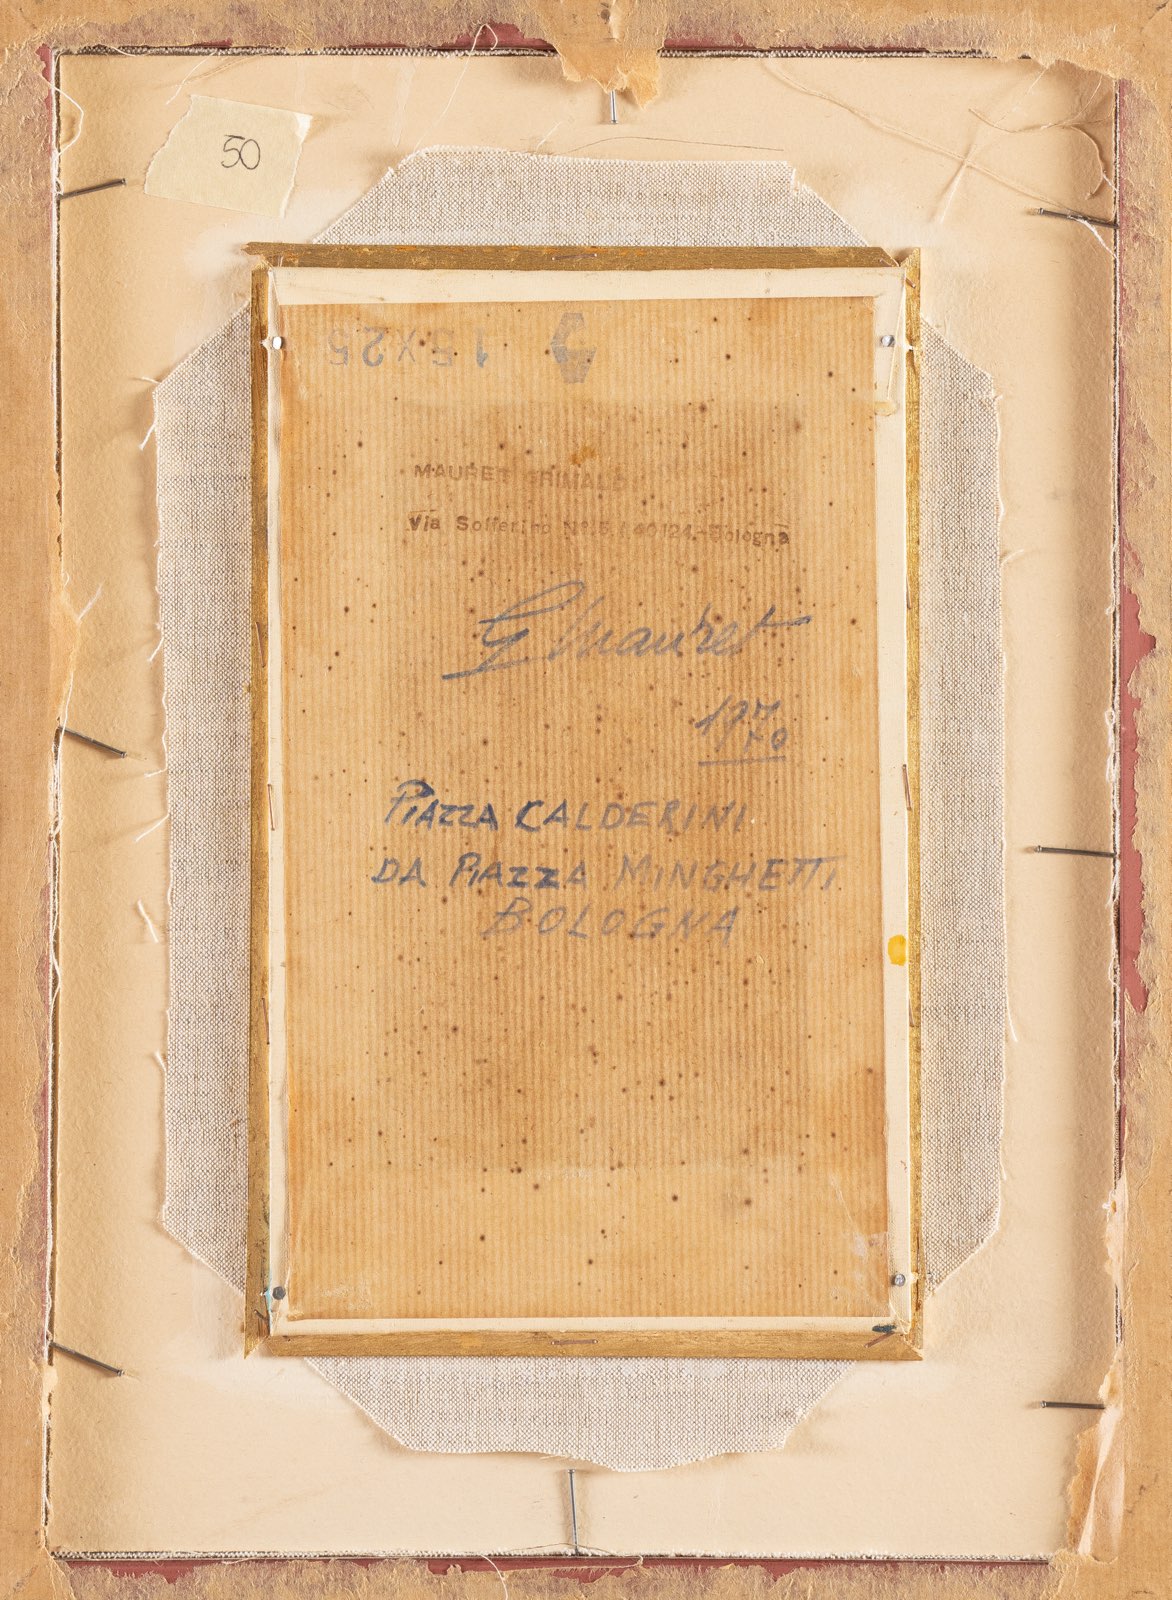 50
15x25
MAURET GRIMALD
Via Solferino N° 5 (40124 - Bologna
G Mauret
1970
PIAZZA CALDERINI
DA PIAZZA MINGHETTI
BOLOGNA